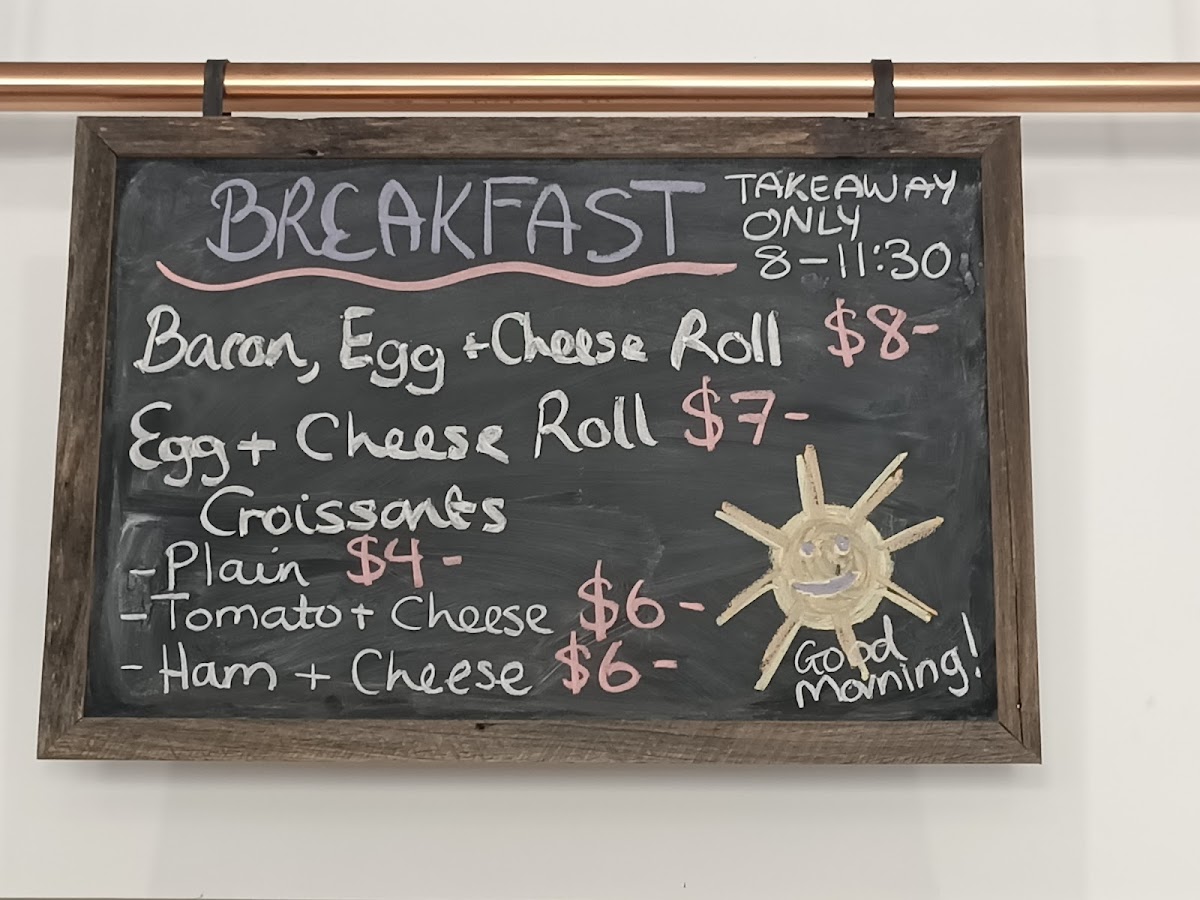 BREAKFAST
TAKEAWAY
ONLY
8-11:30
Bacon, Egg + Cheese Roll $8-
Egg + Cheese Roll $7-
Croissants
- Plain $4-
- Tomato + Cheese $6-
- Ham + Cheese $6-
Good
morning!